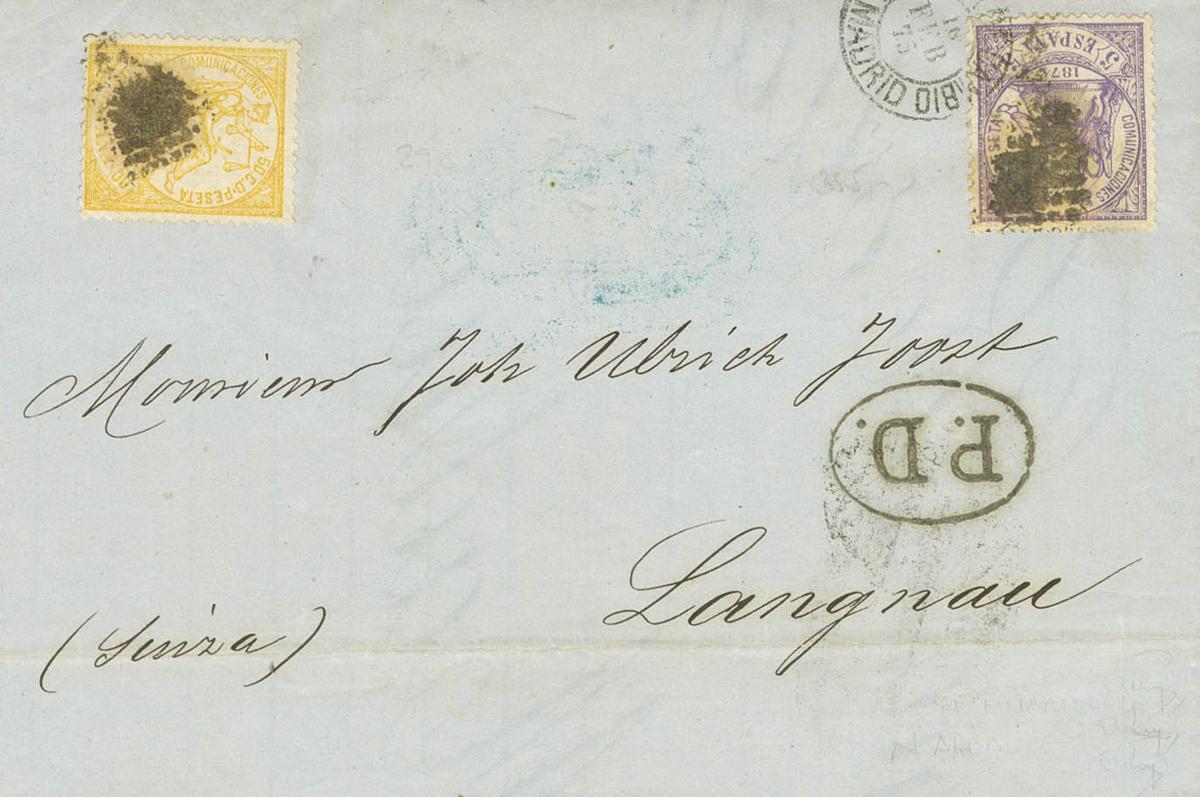 COMUNICACIONES
50 C. D. PESETA
MADRID
16
FEB
75
5 ESPAÑA
1874
COMUNICACIONES
Monsieur Joh Ulrich Joost
P.D.
Langnau
(Suiza)